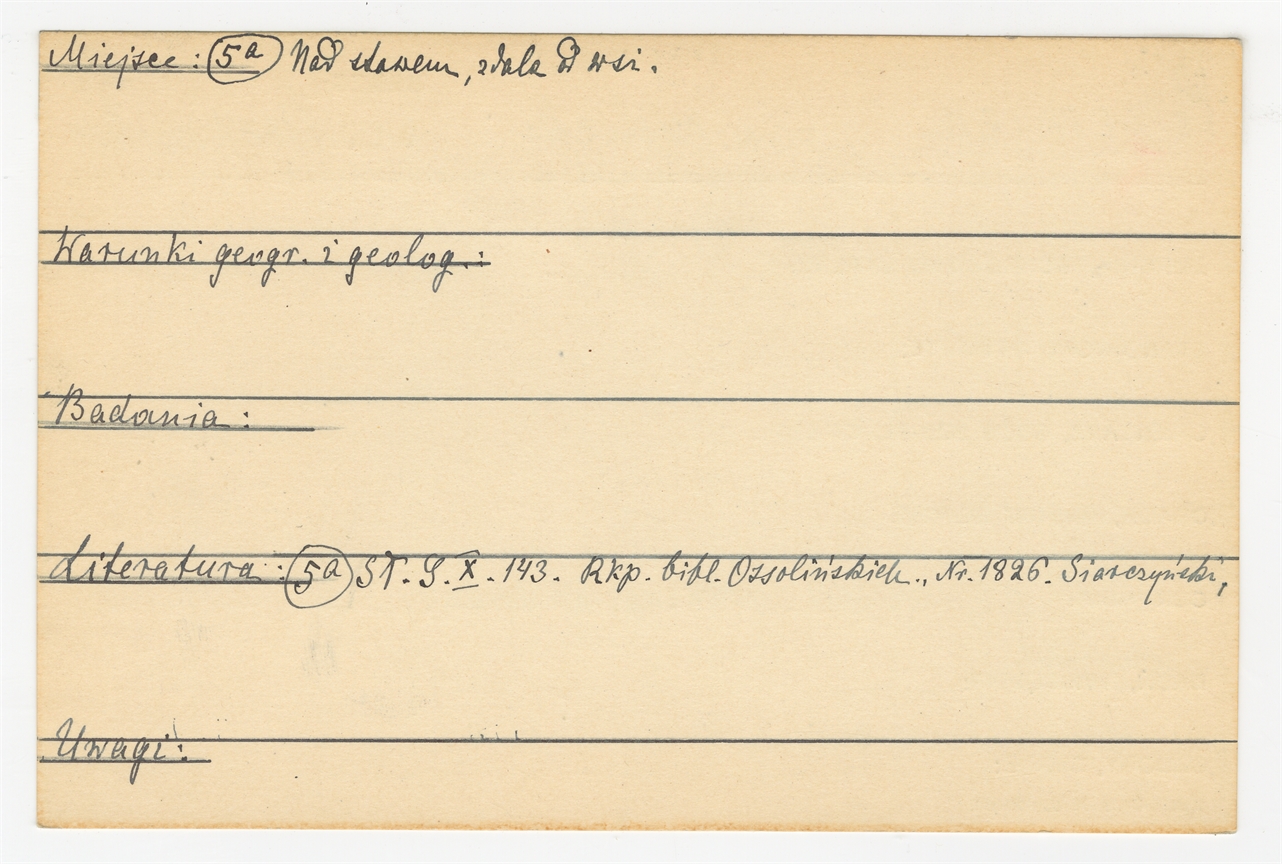 Miejsce : 5a Nad stawem, zdala od wsi.
Warunki geogr. i geolog. :
Badania :
Literatura : 5a Sł. G. X. 143. Rkp. bibl. Ossolińskich., Nr. 1826. Siarczyński,
Uwagi :